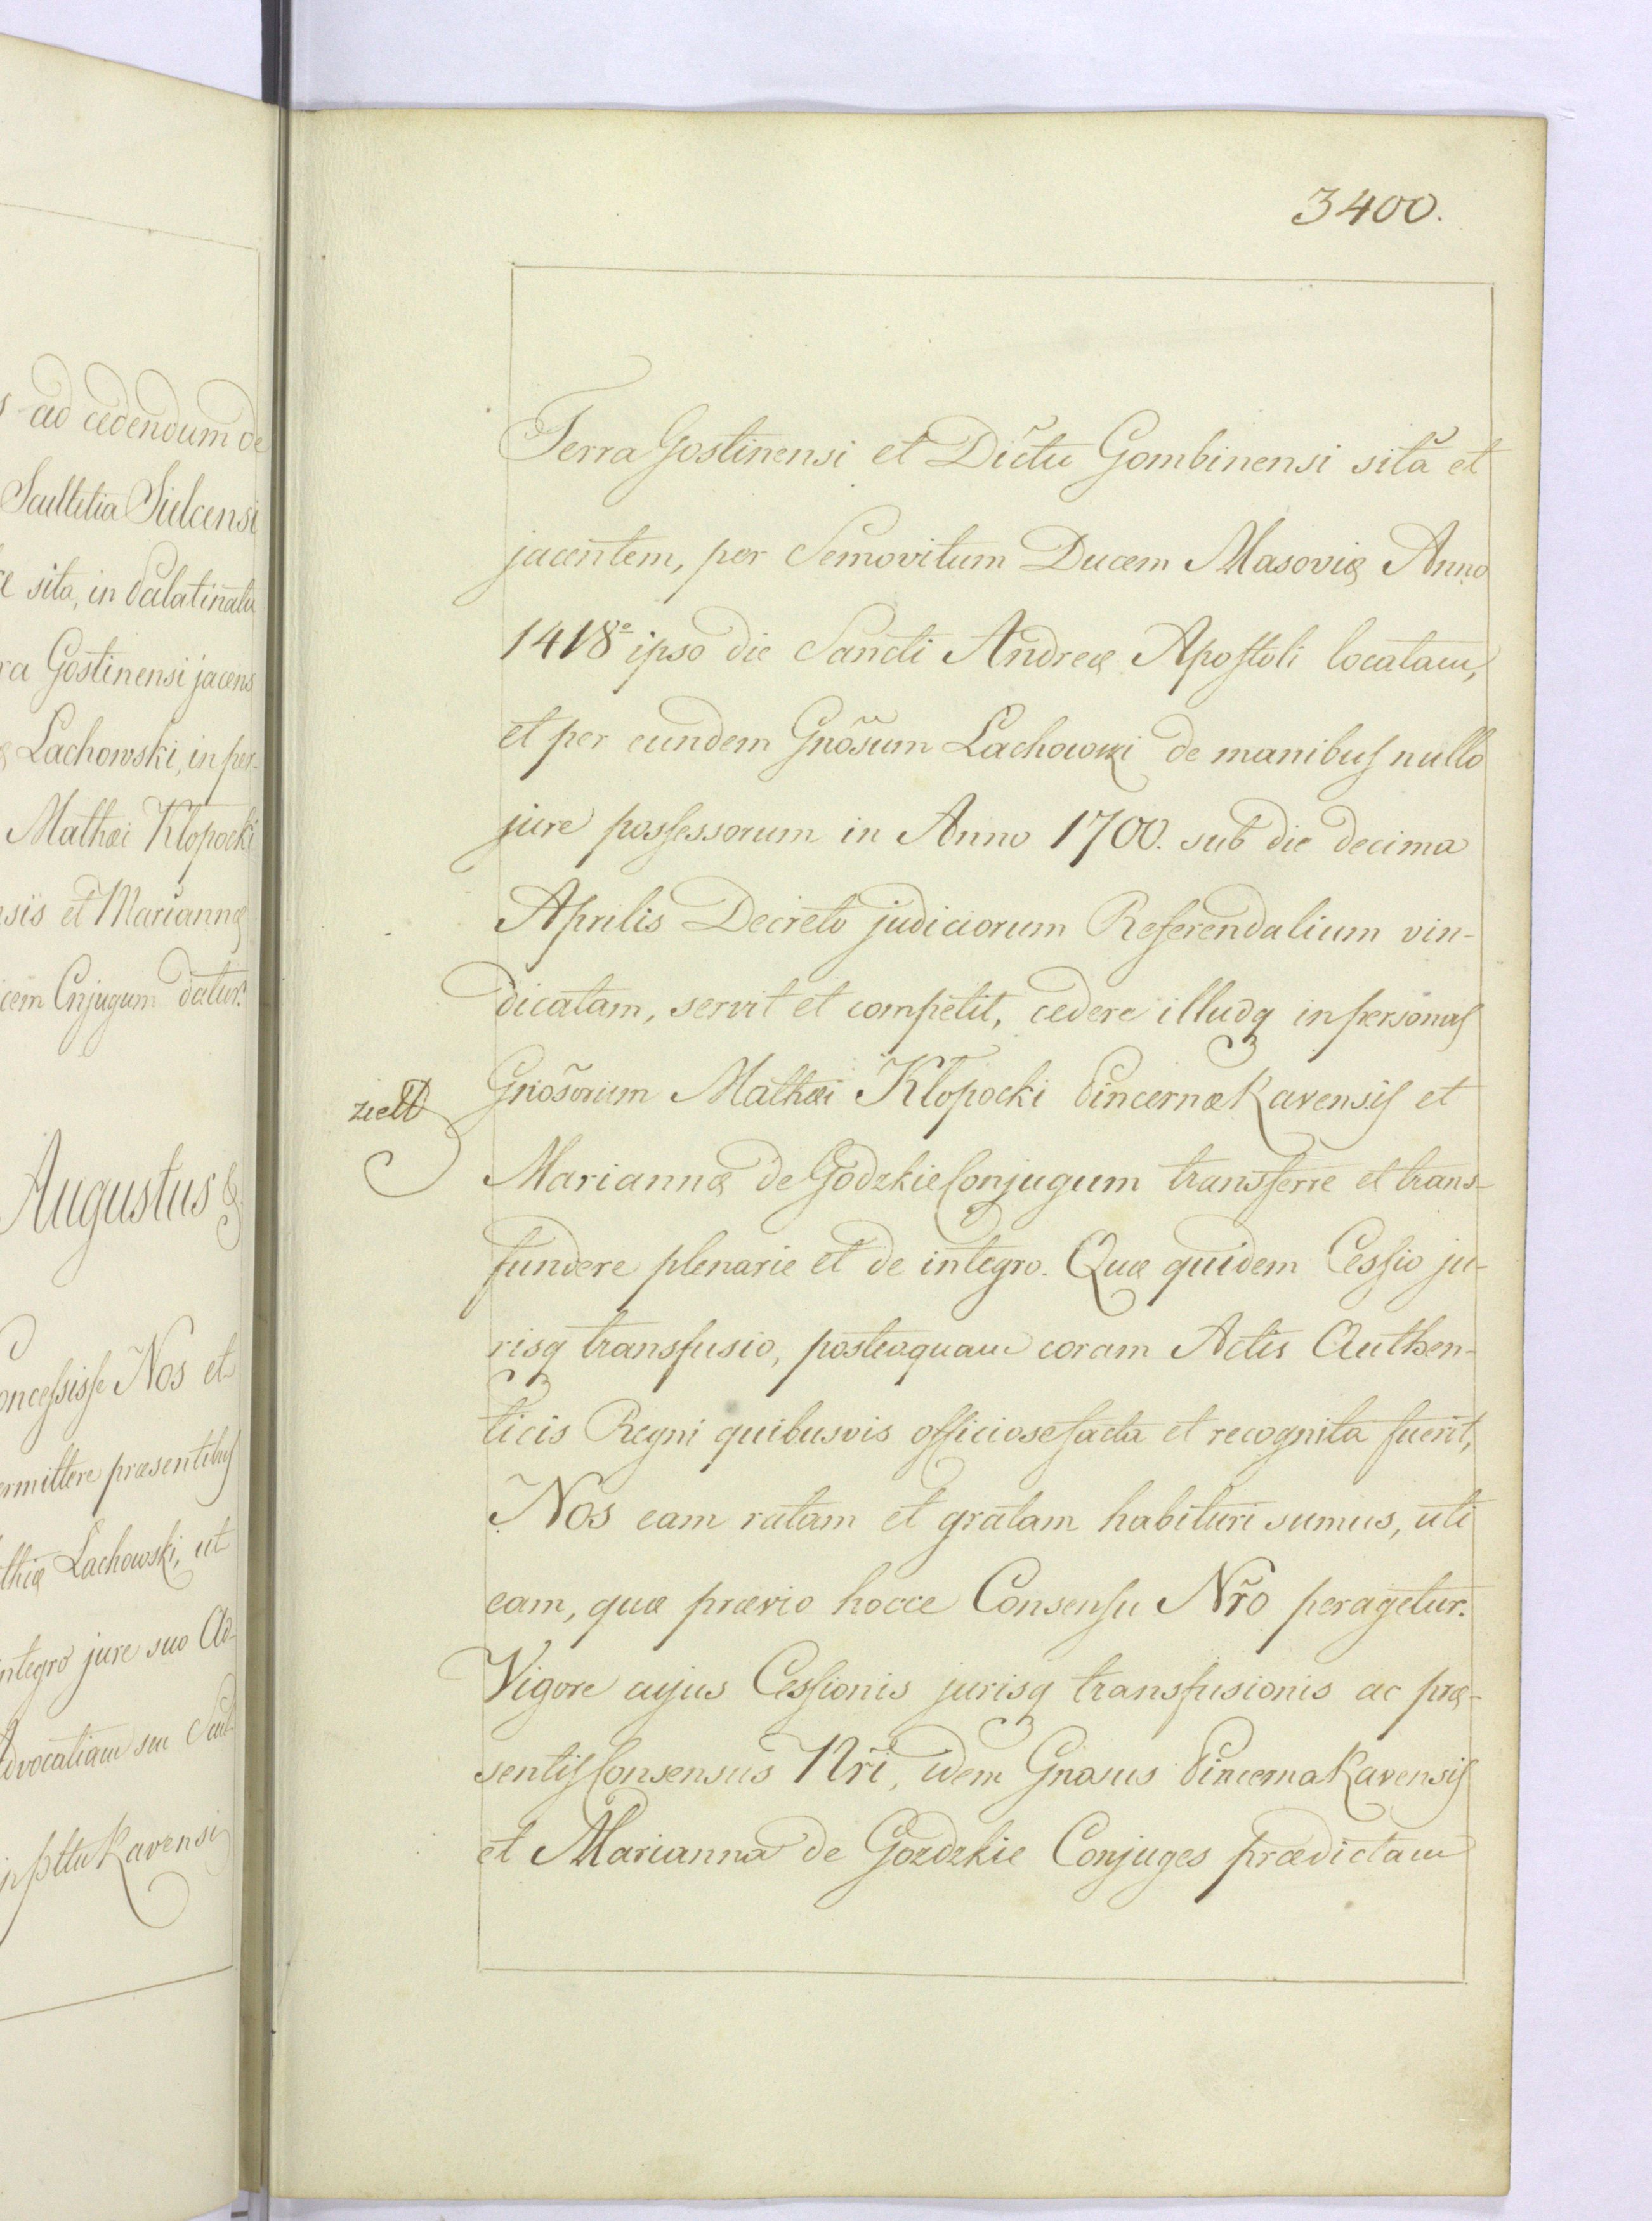 s ad cedendum de
Scultetia Sielcensi
sita, in Palatinatu
ra Gostinensi jacens
Lachowski, in per-
Mathæi Kłopocki
nsis et Mariannæ
cem Cnjugum datur.
Augustus &
oncessisse Nos et
ermittere præsentibus
thiæ Lachowski, ut
ntegro jure suo Ad-
dvocatiam seu Scul-
in Pttu Ravensi
3400.
Terra Gostinensi et Dictu Gombinensi sita et
jacentem, per Semovitum Ducem Masoviæ Anno
1418º ipso die Sancti Andreæ Apostoli locatam,
et per eundem Gnõsum Lachowski de manibus nullo
jure possessorum in Anno 1700. sub die decima
Aprilis Decreto judiciorum Referendalium vin-
dicatam, servit et competit, cedere illudq in personas
Gnõsorum Mathæi Kłopocki Pincernæ Ravensis et
Mariannæ de Godzkie Conjugum transferre et trans-
fundere plenarie et de integro. Quæ quidem Cessio ju-
risq transfusio, posteaquam coram Actis Authen-
ticis Regni quibusvis officiose facta et recognita fuerit,
Nos eam ratam et gratam habituri sumus, uti
eam, quæ prævio hocce Consensu Nrõ peragetur.
Vigore cujus Cessionis jurisq transfusionis ac præ-
sentis Consensus Nri, idem Gnosus Pincerna Ravensis
et Marianna de Gozdzkie Conjuges prædictam